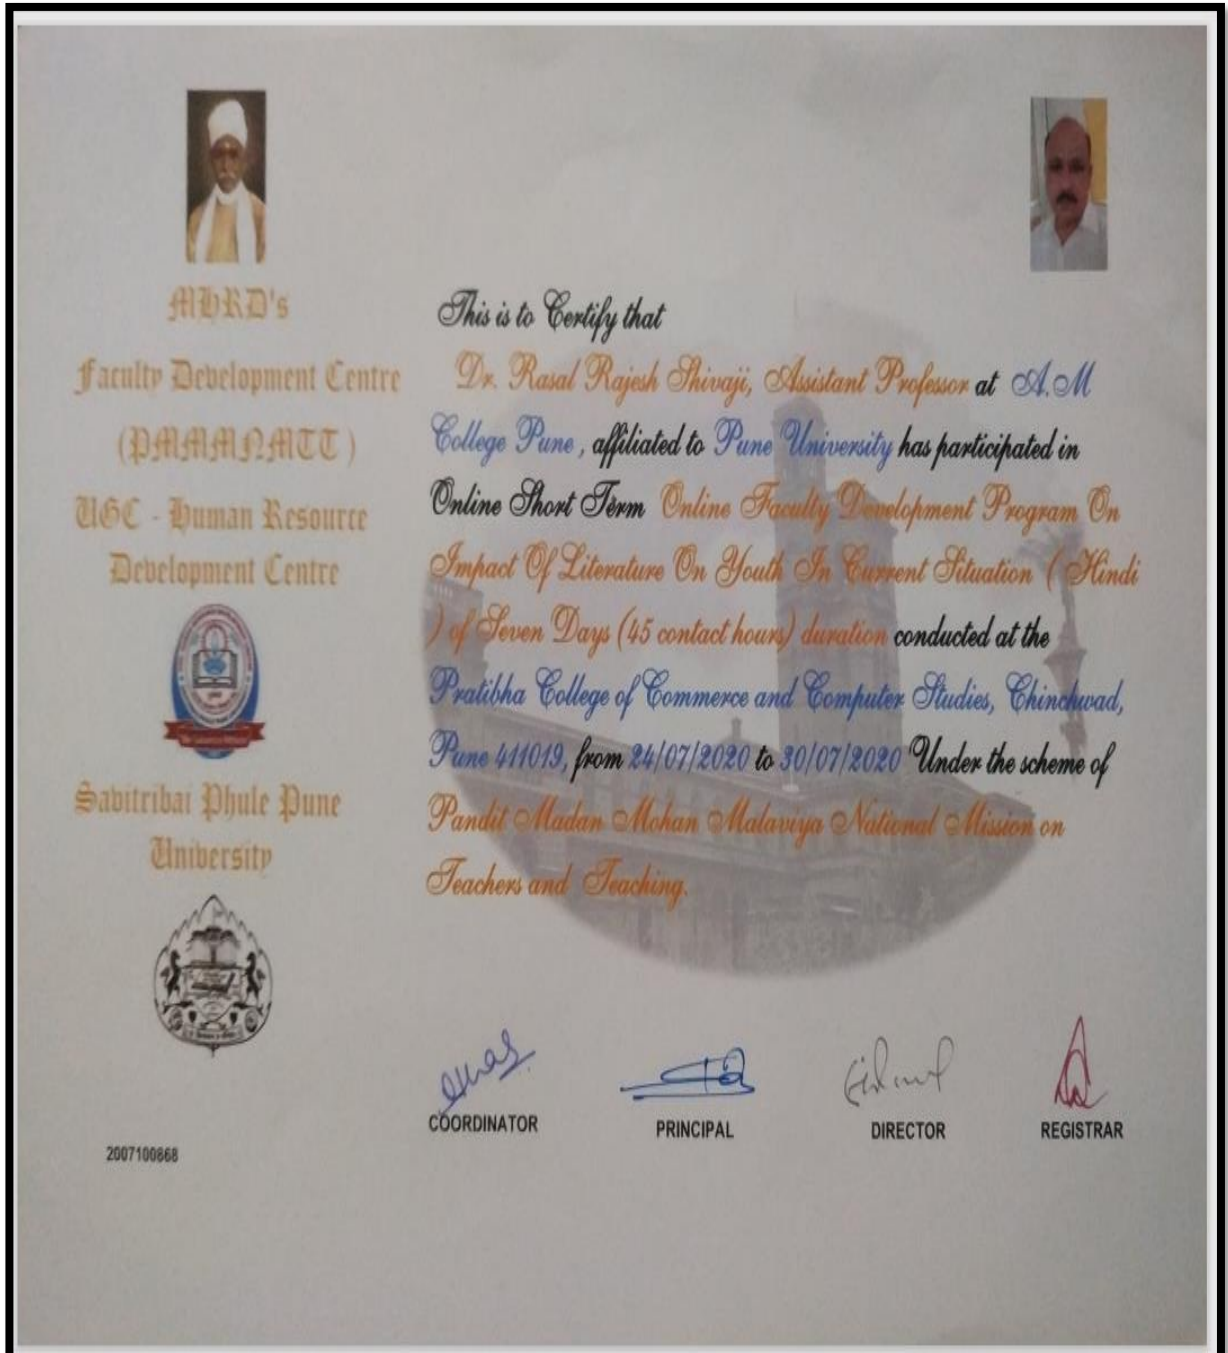 MHRD's
Faculty Development Centre
(PMMMNMTT)
UGC - Human Resource
Development Centre
Savitribai Phule Pune
University
This is to Certify that
Dr. Rasal Rajesh Shivaji, Assistant Professor at A.M
College Pune, affiliated to Pune University has participated in
Online Short Term Online Faculty Development Program On
Impact Of Literature On Youth In Current Situation ( Hindi
) of Seven Days (45 contact hours) duration conducted at the
Pratibha College of Commerce and Computer Studies, Chinchwad,
Pune 411019, from 24/07/2020 to 30/07/2020 Under the scheme of
Pandit Madan Mohan Malaviya National Mission on
Teachers and Teaching.
COORDINATOR
PRINCIPAL
DIRECTOR
REGISTRAR
2007100868